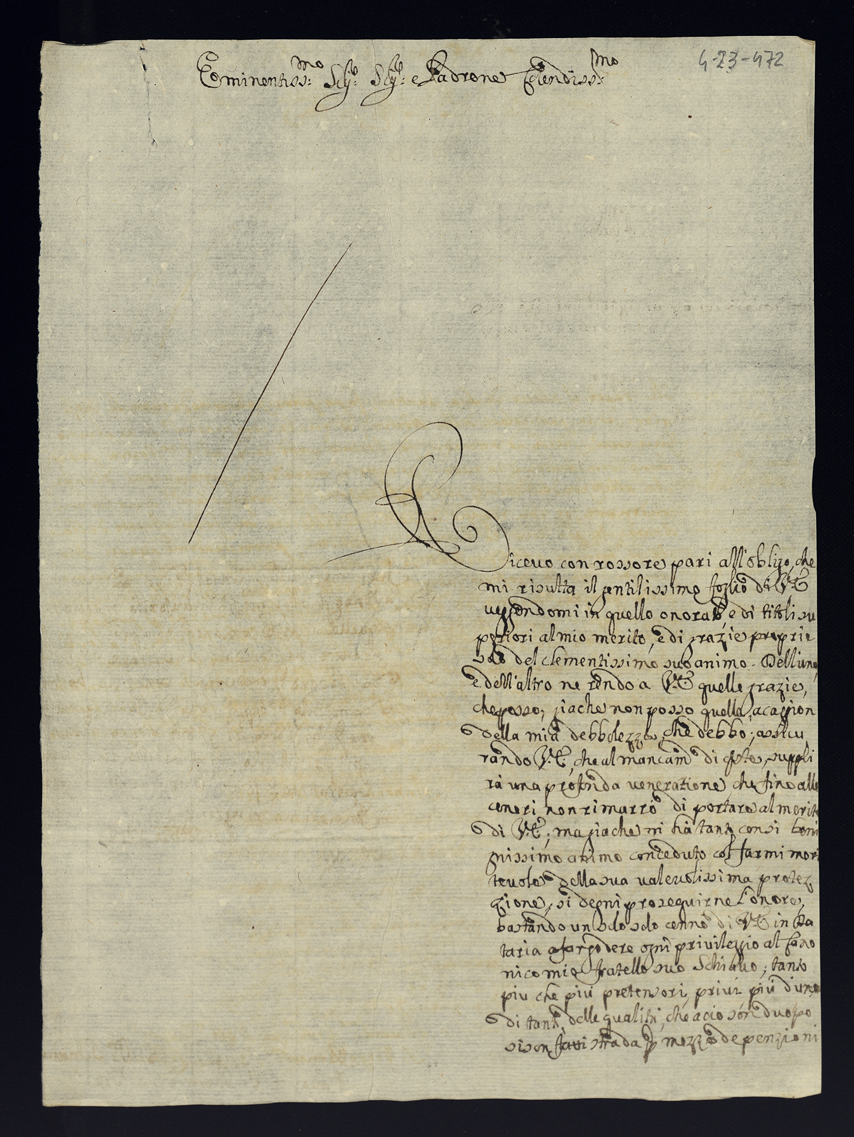 4-23-472
Eminentiss:mo Sig.r Sig.r e Padrone Colendiss:mo
Ricevo con rossore pari all'obligo, che
mi risulta il gentilissimo foglio di V.E.
veggendomi in quello onorato, e di titoli su
periori al mio merito, e di grazie proprie
solo del clementissimo suo animo. Dell'uno,
e dell'altro ne rendo a V.E. quelle grazie,
che posso, giache non posso quelle, a cagion
della mia debbolezza, che debbo; assicu
rando V.E., che al mancam.to di q.ste, suppli
rà una profonda veneratione, che fino alle
ceneri non rimarrò di portare al merito
di V.E.; ma giache mi hà tanto con si beni
gnissimo animo conceduto col farmi meri
tevole della sua valevolissima protez
zione, si degni proseguirne l'onore,
bastando un solo solo cenno di V.E. in Da
taria a far godere ogni privileggio al
nico mio fratello suo Schiavo; tanto
piu che più pretensori, privi più d'uno
di tante delle qualità, che a cio son d'uopo
si son fatti strada p mezzo de penzioni